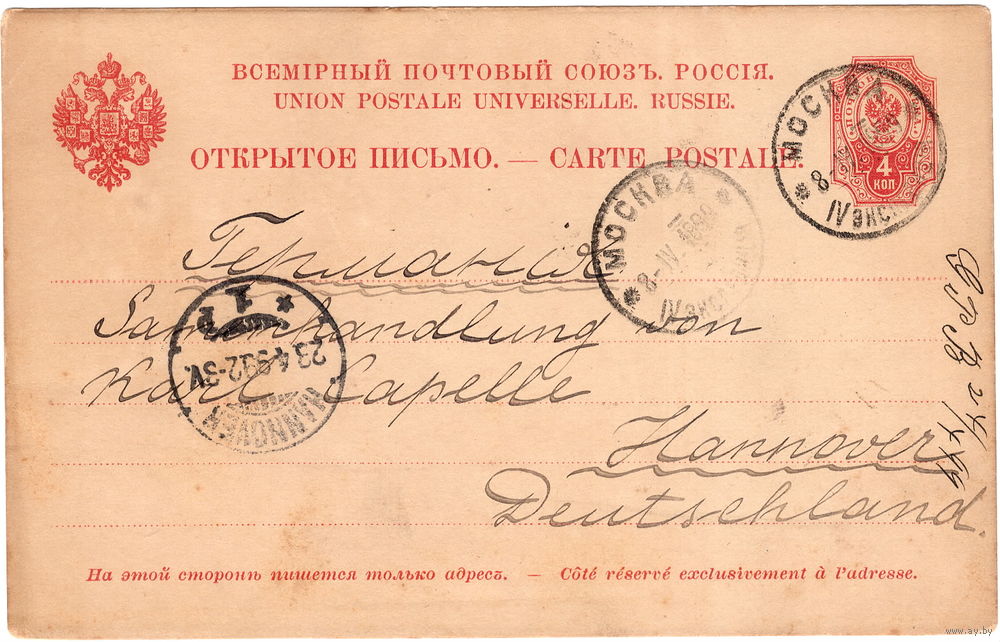 ВСЕМІРНЫЙ ПОЧТОВЫЙ СОЮЗЪ. РОССІЯ.
UNION POSTALE UNIVERSELLE. RUSSIE.
ОТКРЫТОЕ ПИСЬМО. — CARTE POSTALE.
4
КОП
МОСКВА
8
IV экс
МОСКВА
8-IV 1899
IV экс
Германія
Samenhandlung von
Karl Capelle
Hannover
Deutschland.
HANNOVER
23.4.99.2-3V.
1
На этой сторонѣ пишется только адресъ. — Côté réservé exclusivement à l'adresse.
www.ay.by